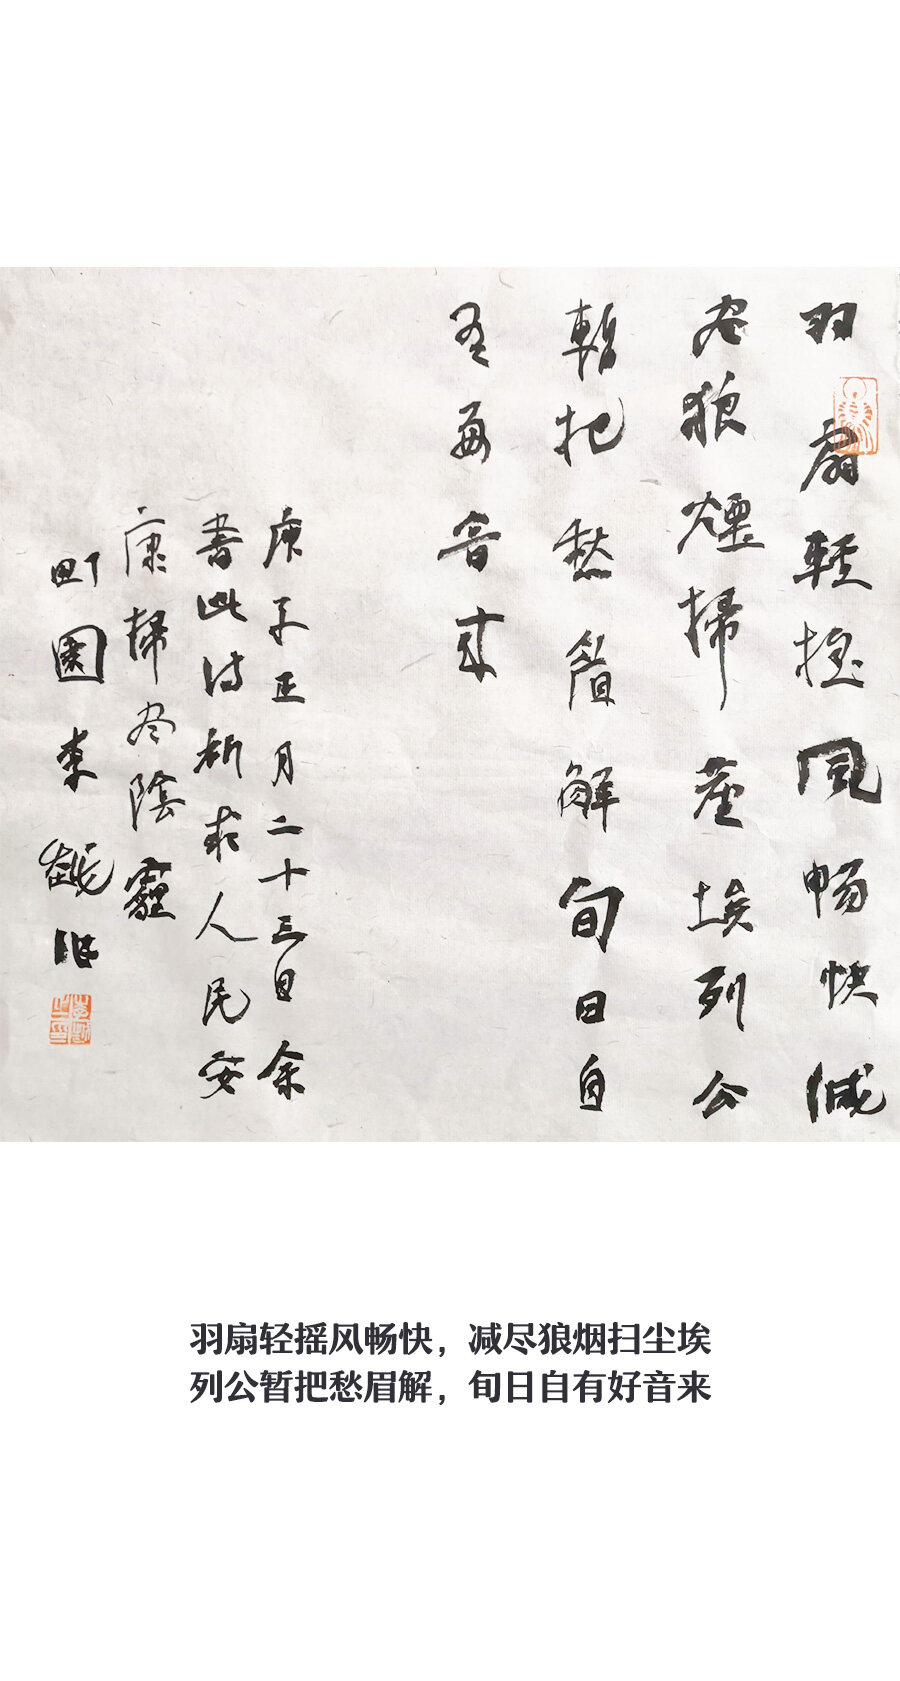 羽扇輕摇風畅快减
尽狼煙掃塵埃列公
暫把愁眉解旬日自
有好音来
庚子正月二十三日余
書此诗祈求人民安
康掃尽陰霾
町園李
羽扇轻摇风畅快，减尽狼烟扫尘埃
列公暂把愁眉解，旬日自有好音来